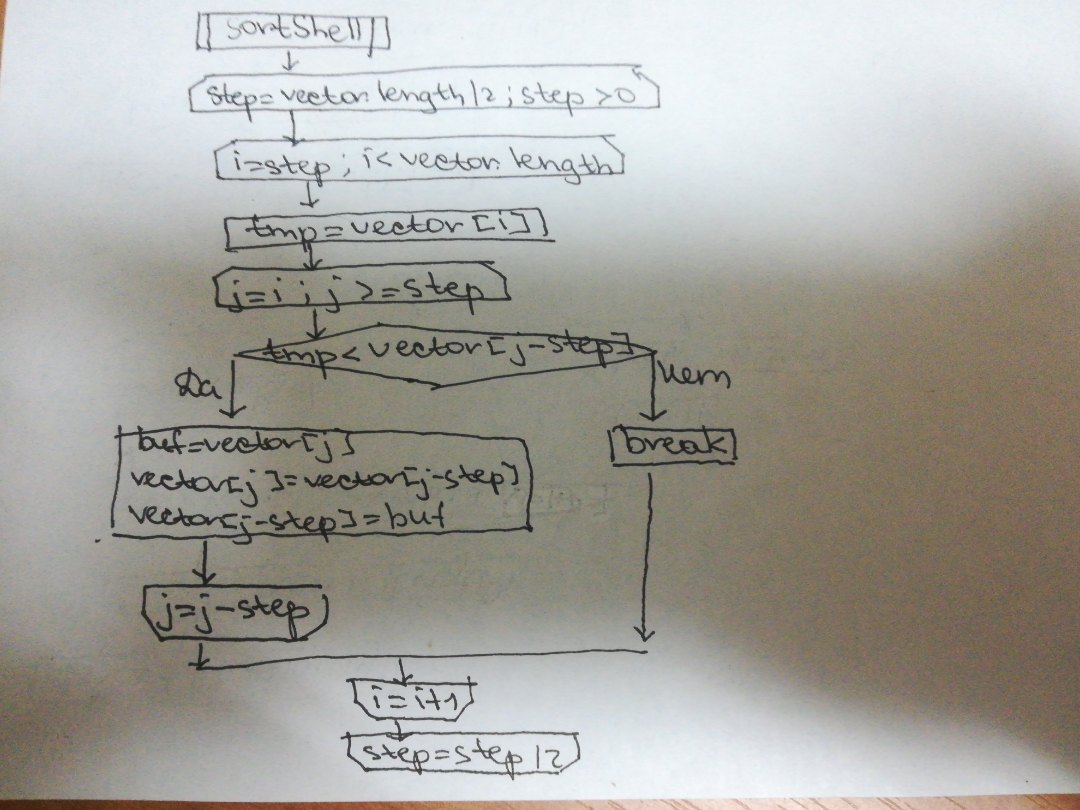 sortShell
step=vector.length/2; step>0
i=step; i<vector.length
tmp=vector[i]
j=i; j>=step
tmp<vector[j-step]
Да
нет
buf=vector[j]
vector[j]=vector[j-step]
vector[j-step]=buf
break
j=j-step
i=i+1
step=step/2